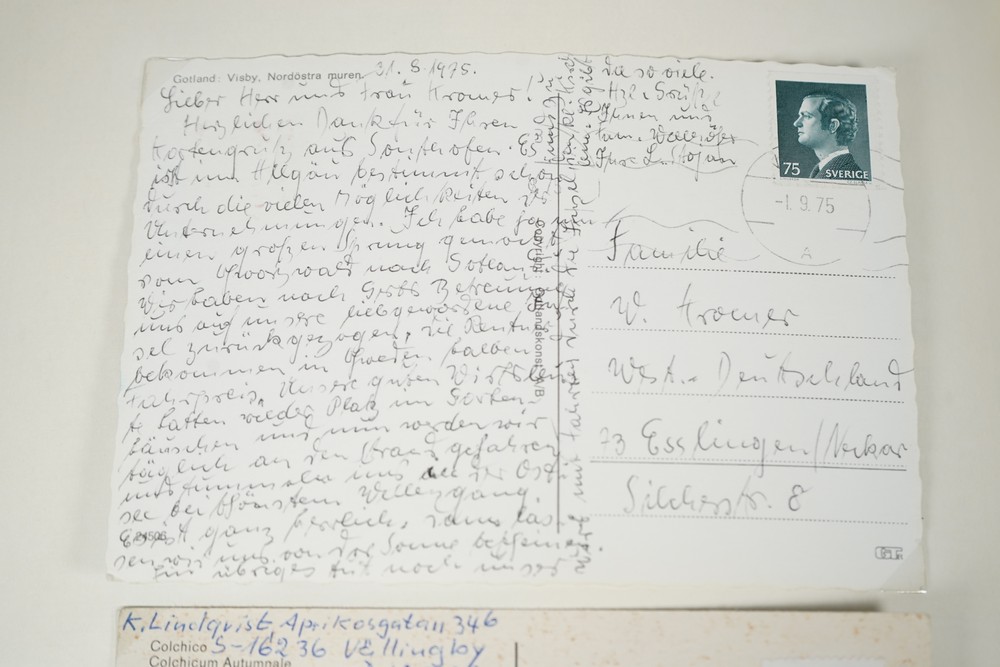 Gotland: Visby, Nordöstra muren. 31. 8. 1975.
Lieber Herr und Frau Kromer!
Herzlichen Dank für Ihren
Kartengruß aus Sonthofen. Es
ist im Allgäu bestimmt schön
durch die vielen Möglichkeiten der
Unternehmungen. Ich habe ja nun
einen großen Sprung gemacht
vom Schwarzwald nach Gotland.
Wir haben nach Betreuung
uns auf unsere liebgewordene In-
sel zurückgezogen, die Rentner
bekommen in Schweden halben
Fahrpreis. Unsere guten Wirtsleu-
te hatten wieder Platz im Garten-
häuschen und nun werden wir
täglich an den Strand gefahren
und tummeln uns in der Ost-
see bei schönstem Wellengang.
Es ist ganz herrlich, dann las-
sen wir uns von der Sonne bescheinen.
Ein übriges tut noch unser
die Insel
da so viele.
Hzl. Grüße
Ihnen und
Ihre L. Stojan
Copyright: Gotlandskonst A/B
24506
75 SVERIGE
-1. 9. 75
A
Familie
W. Kromer
West-Deutschland
73 Esslingen/Neckar
Silcherstr. 8
K. Lindqvist, Aprikosgatan 346
Colchico S-162 36 Vällingby
Colchicum Autumnale